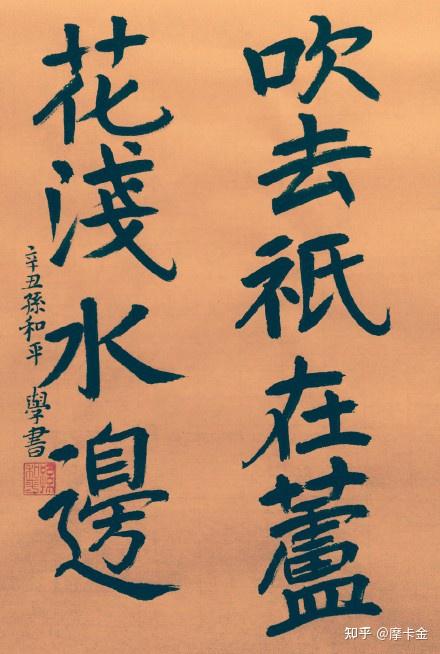 吹去祇在蘆
花淺水邊
辛丑孫和平 學書
知乎 @摩卡金